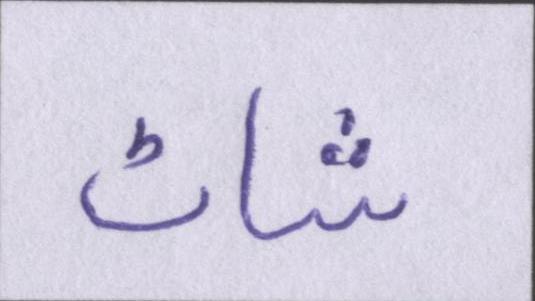 شاٹ